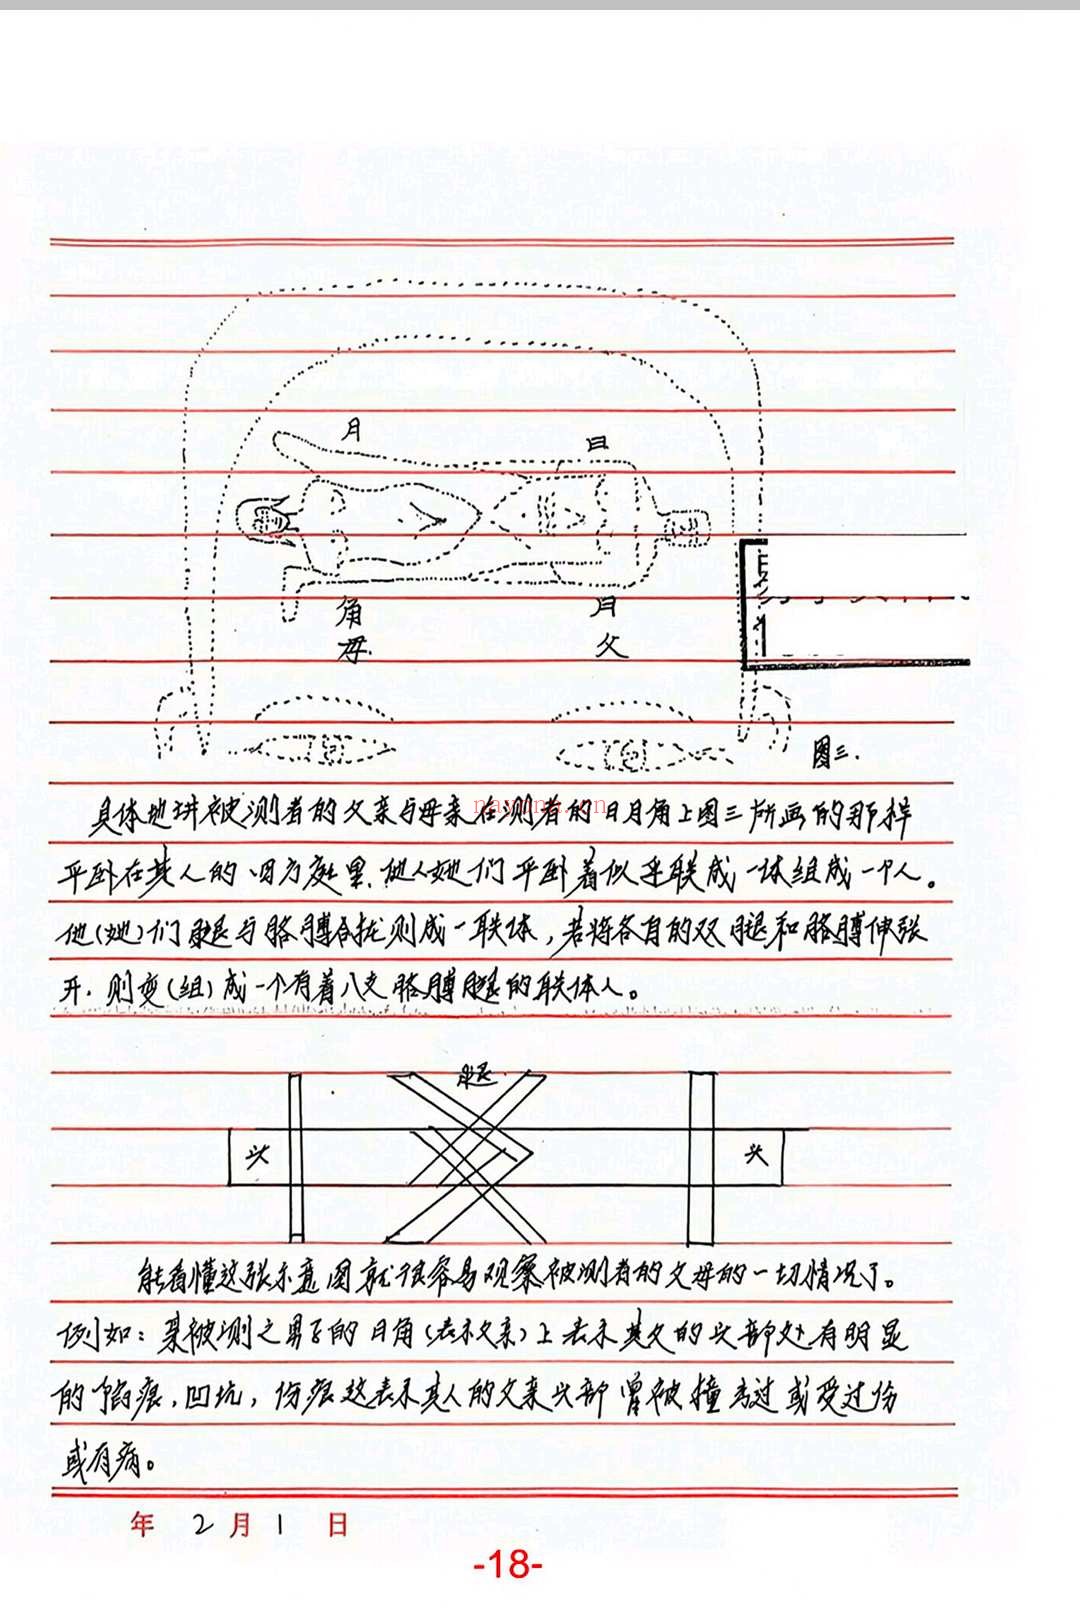 月 日
角 月
母. 父
图三.
具体地讲被测者的父亲与母亲在测者的日月角上图三所画的那样
平卧在其人的四方庭里.他人她们平卧着似乎联成一体组成一个人。
他(她)们腿与胳膊合拢则成一联体,若将各自的双腿和胳膊伸张
开.则变(组)成一个有着八支胳膊腿的联体人。
腿
头 头
能看懂这张示意图就很容易观察被测者的父母的一切情况了。
例如:某被测之男子的日角(表示父亲)上表示其父的头部处有明显
的陷痕,凹坑,伤痕这表示其人的父亲头部曾被撞击过或受过伤
或有病。
年 2 月 1 日
-18-